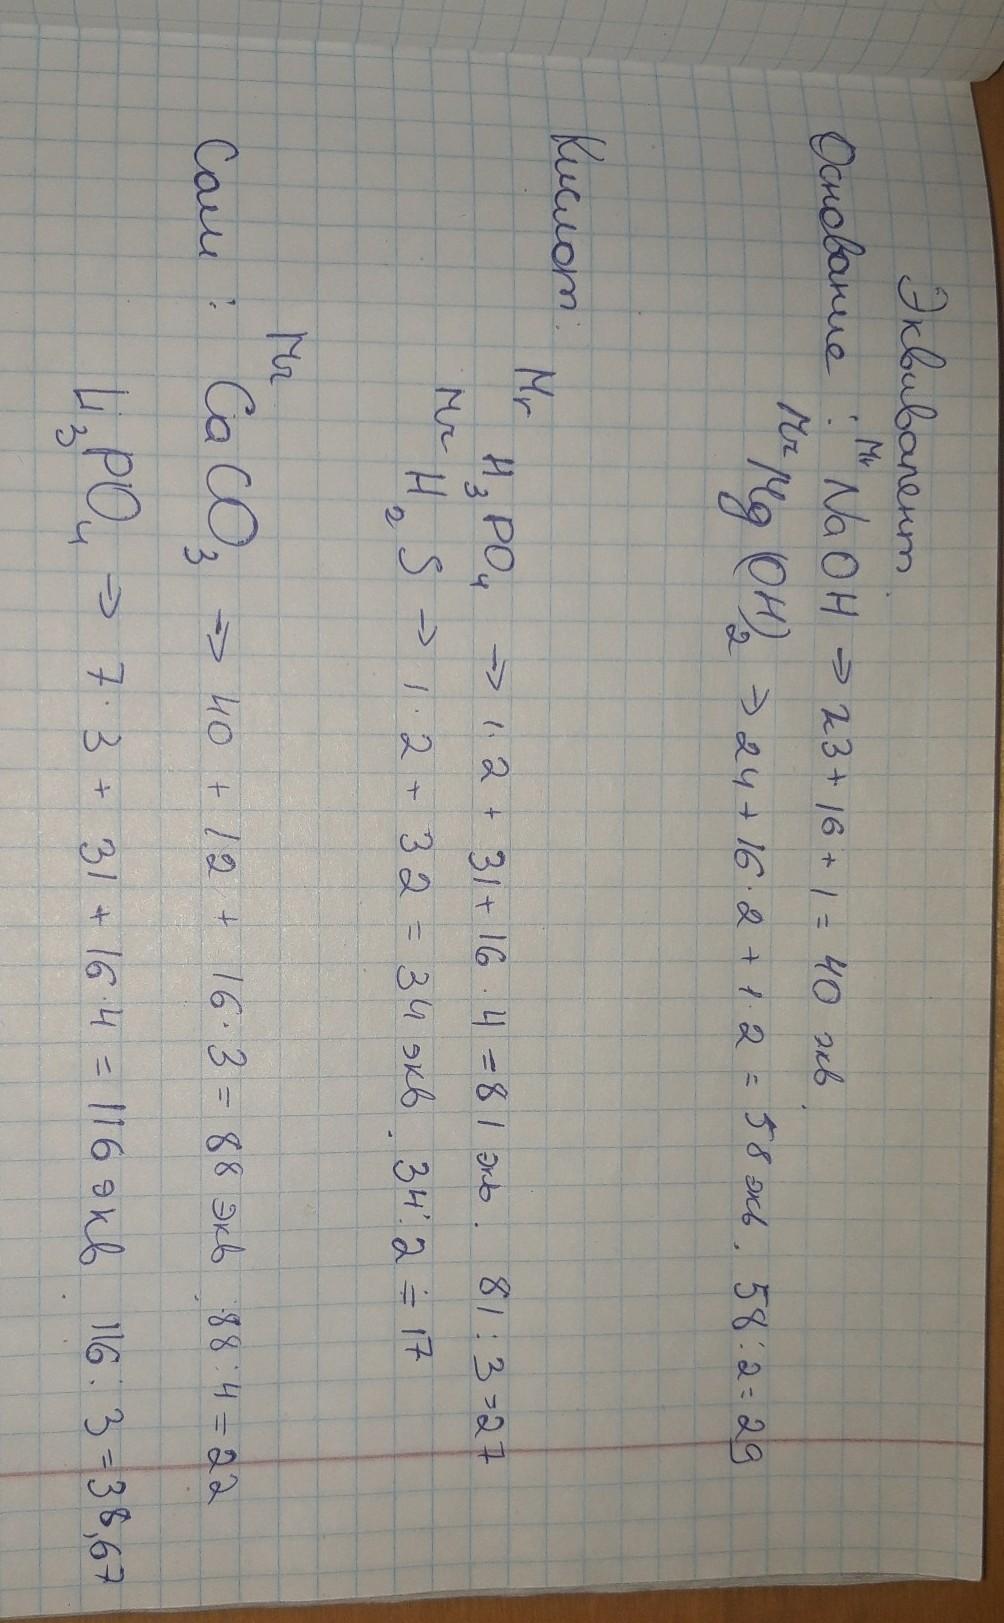 Эквивалент.
Основание : Mr NaOH ⇒ 23 + 16 + 1 = 40 экв.
Mr Mg(OH)₂ ⇒ 24 + 16·2 + 1·2 = 58 экв. 58:2=29
Кислот:
Mr H₃PO₄ ⇒ 1·2 + 31 + 16·4 = 81 экв. 81:3=27
Mr H₂S → 1·2 + 32 = 34 экв. 34:2=17
Mr
Соли : CaCO₃ ⇒ 40 + 12 + 16·3 = 88 экв. 88:4=22
Li₃PO₄ ⇒ 7·3 + 31 + 16·4 = 116 экв. 116:3=38,67